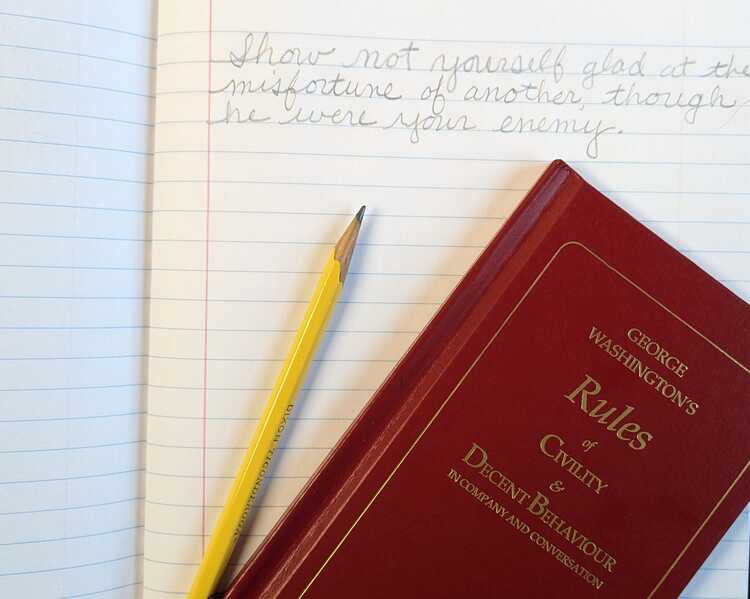 Show not yourself glad at the
misfortune of another, though
he were your enemy.
GEORGE
WASHINGTON'S
Rules
of
CIVILITY
&
DECENT BEHAVIOUR
IN COMPANY AND CONVERSATION
DIXON TICONDEROGA